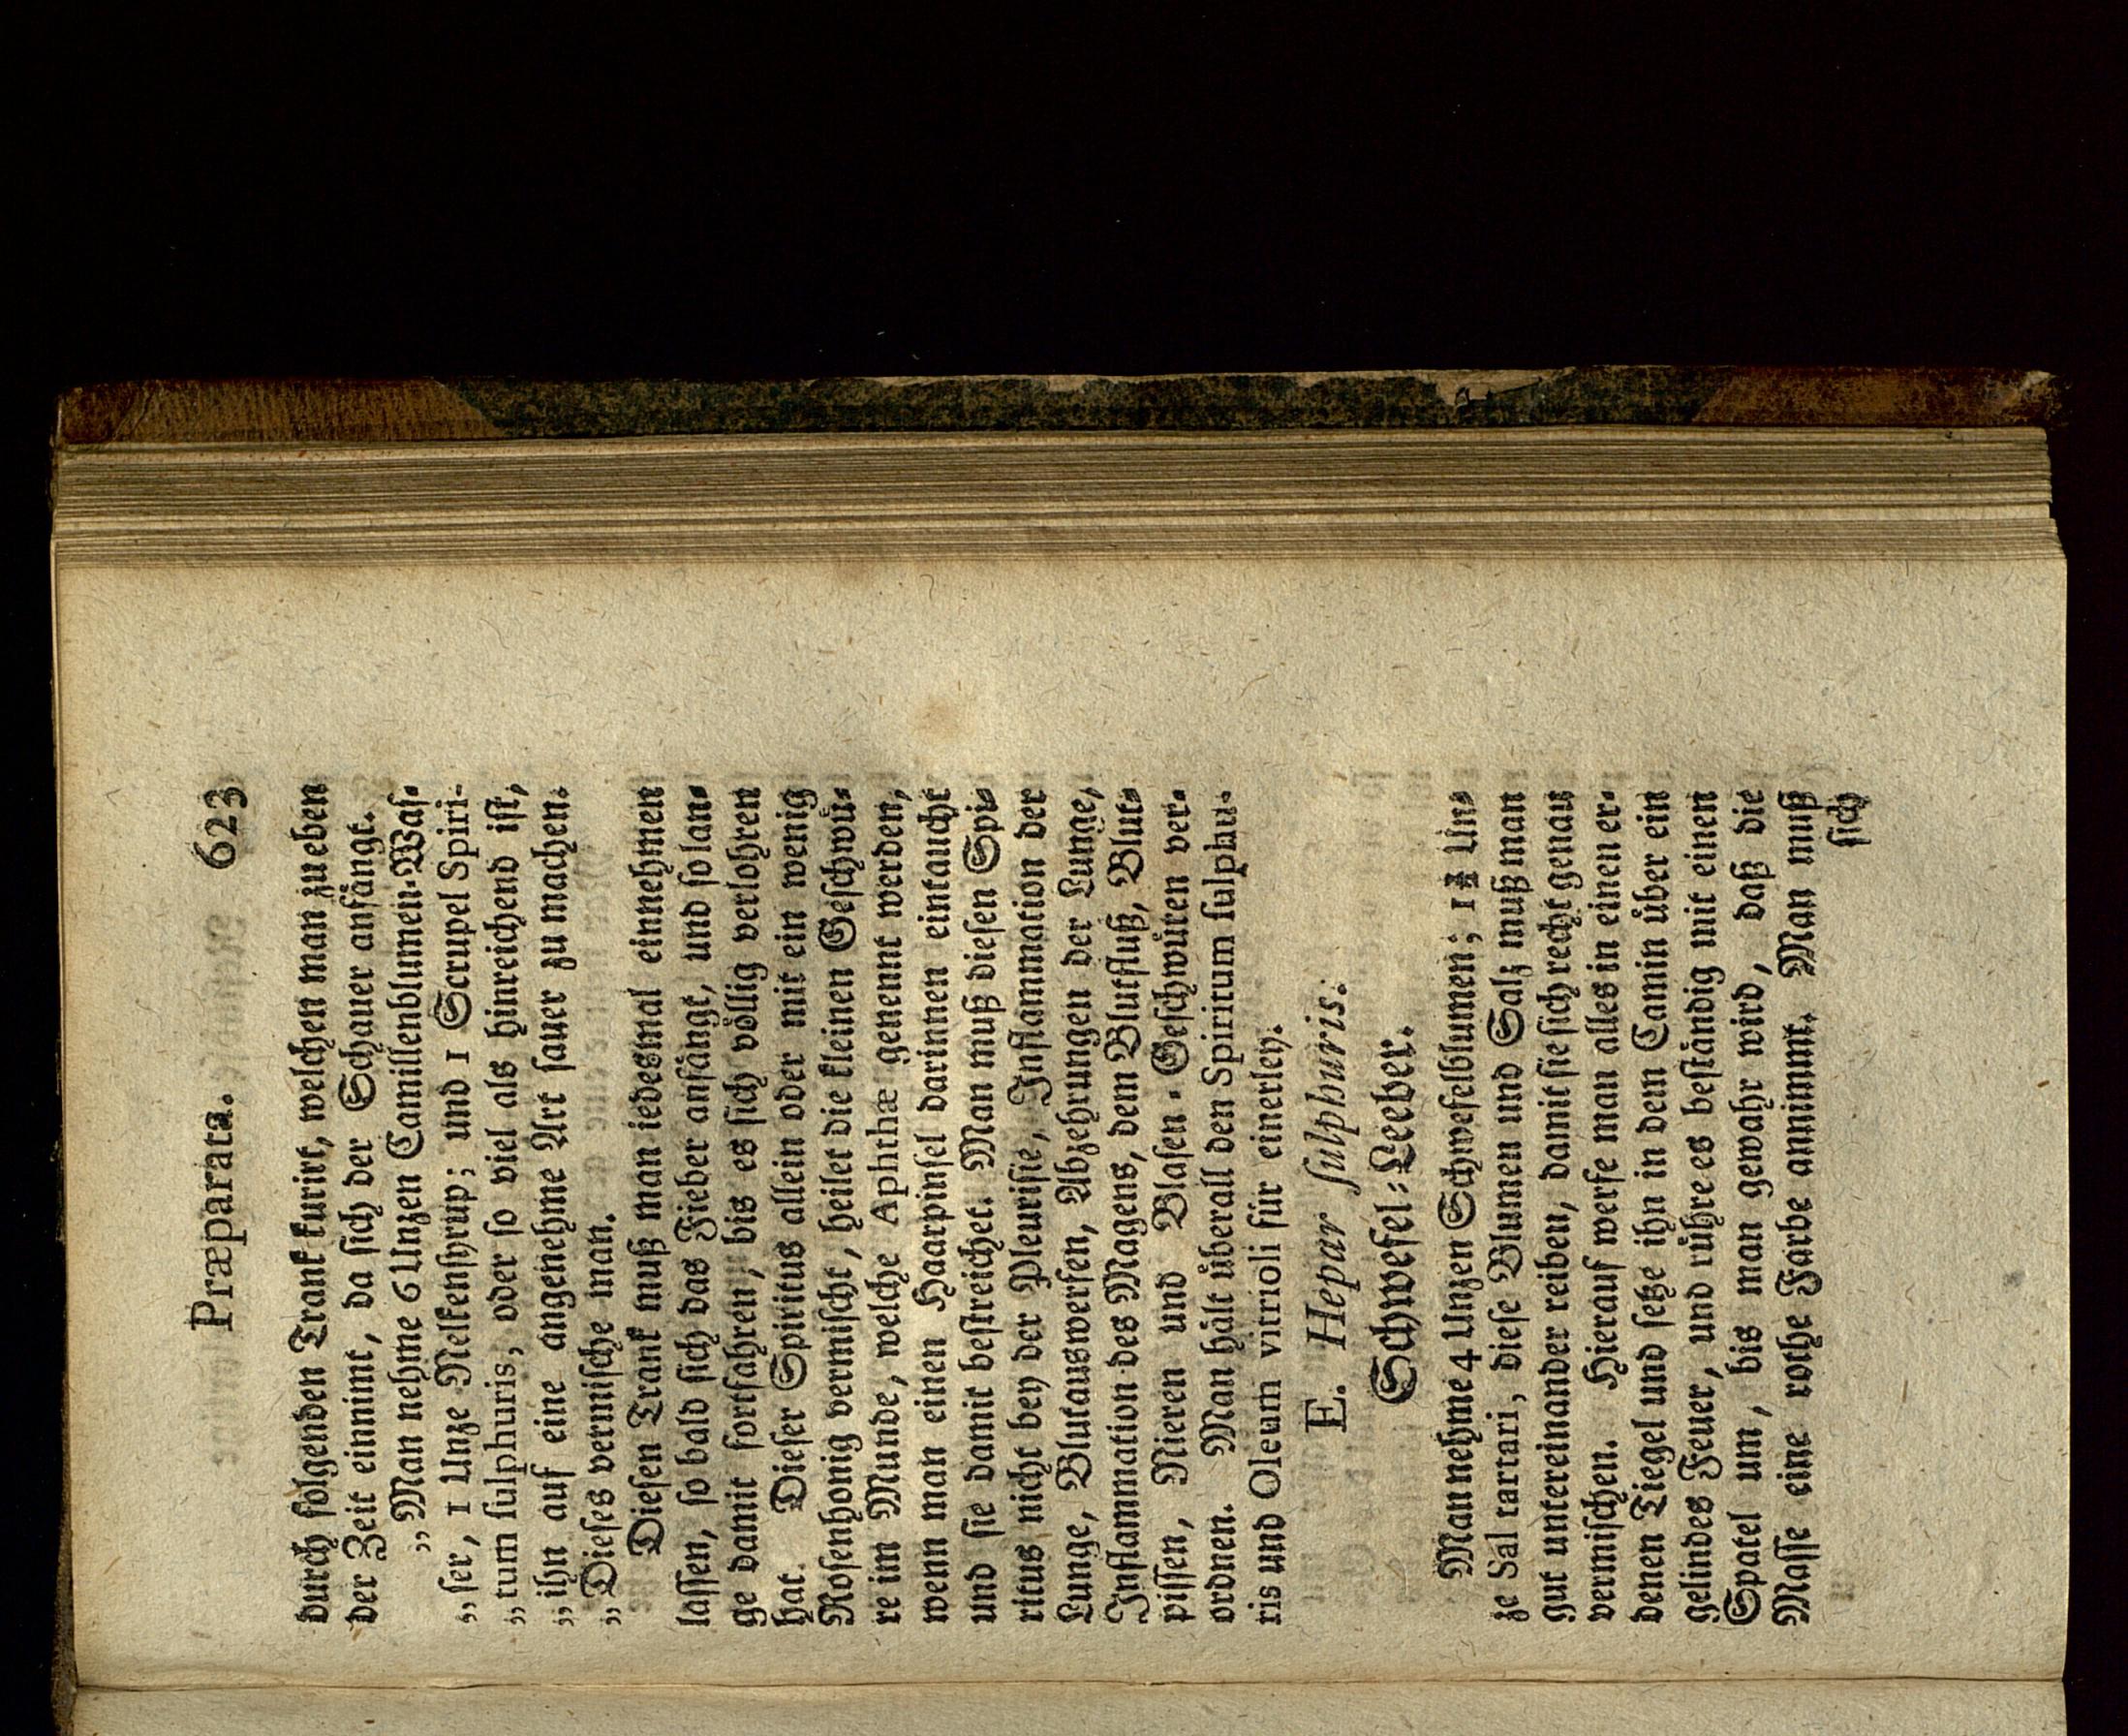 Præparata. 623
durch folgenden Trank kurirt, welchen man zu eben
der Zeit einnimt, da ſich der Schauer anfängt.
„Man nehme 6 Unzen Camillenblumen-Waſ-
„ſer, 1 Unze Nelkenſyrup; und 1 Scrupel Spiri-
„tum ſulphuris, oder ſo viel als hinreichend iſt,
„ihn auf eine angenehme Art ſauer zu machen.
„Dieſes vermiſche man.
Dieſen Trank muß man iedesmal einnehmen
laſſen, ſo bald ſich das Fieber anfängt, und ſo lan-
ge damit fortfahren, bis es ſich völlig verlohren
hat. Dieſer Spiritus allein oder mit ein wenig
Roſenhonig vermiſcht, heilet die kleinen Geſchwü-
re im Munde, welche Aphthæ genennt werden,
wenn man einen Haarpinſel darinnen eintaucht
und ſie damit beſtreichet. Man muß dieſen Spi-
ritus nicht bey der Pleuriſie, Inflammation der
Lunge, Blutauswerfen, Abzehrungen der Lunge,
Inflammation des Magens, dem Blutfluß, Blut-
piſſen, Nieren und Blaſen-Geſchwüren ver-
ordnen. Man hält überall den Spiritum ſulphu-
ris und Oleum vitrioli für einerley.
E. Hepar ſulphuris.
Schwefel-Leeber.
Man nehme 4 Unzen Schwefelblumen; 1 Un-
ze Sal tartari, dieſe Blumen und Salz muß man
gut untereinander reiben, damit ſie ſich recht genau
vermiſchen. Hierauf werfe man alles in einen er-
denen Tiegel und ſetze ihn in dem Camin über ein
gelindes Feuer, und rühre es beſtändig mit einen
Spatel um, bis man gewahr wird, daß die
Maſſe eine rothe Farbe annimmt. Man muß
ſich